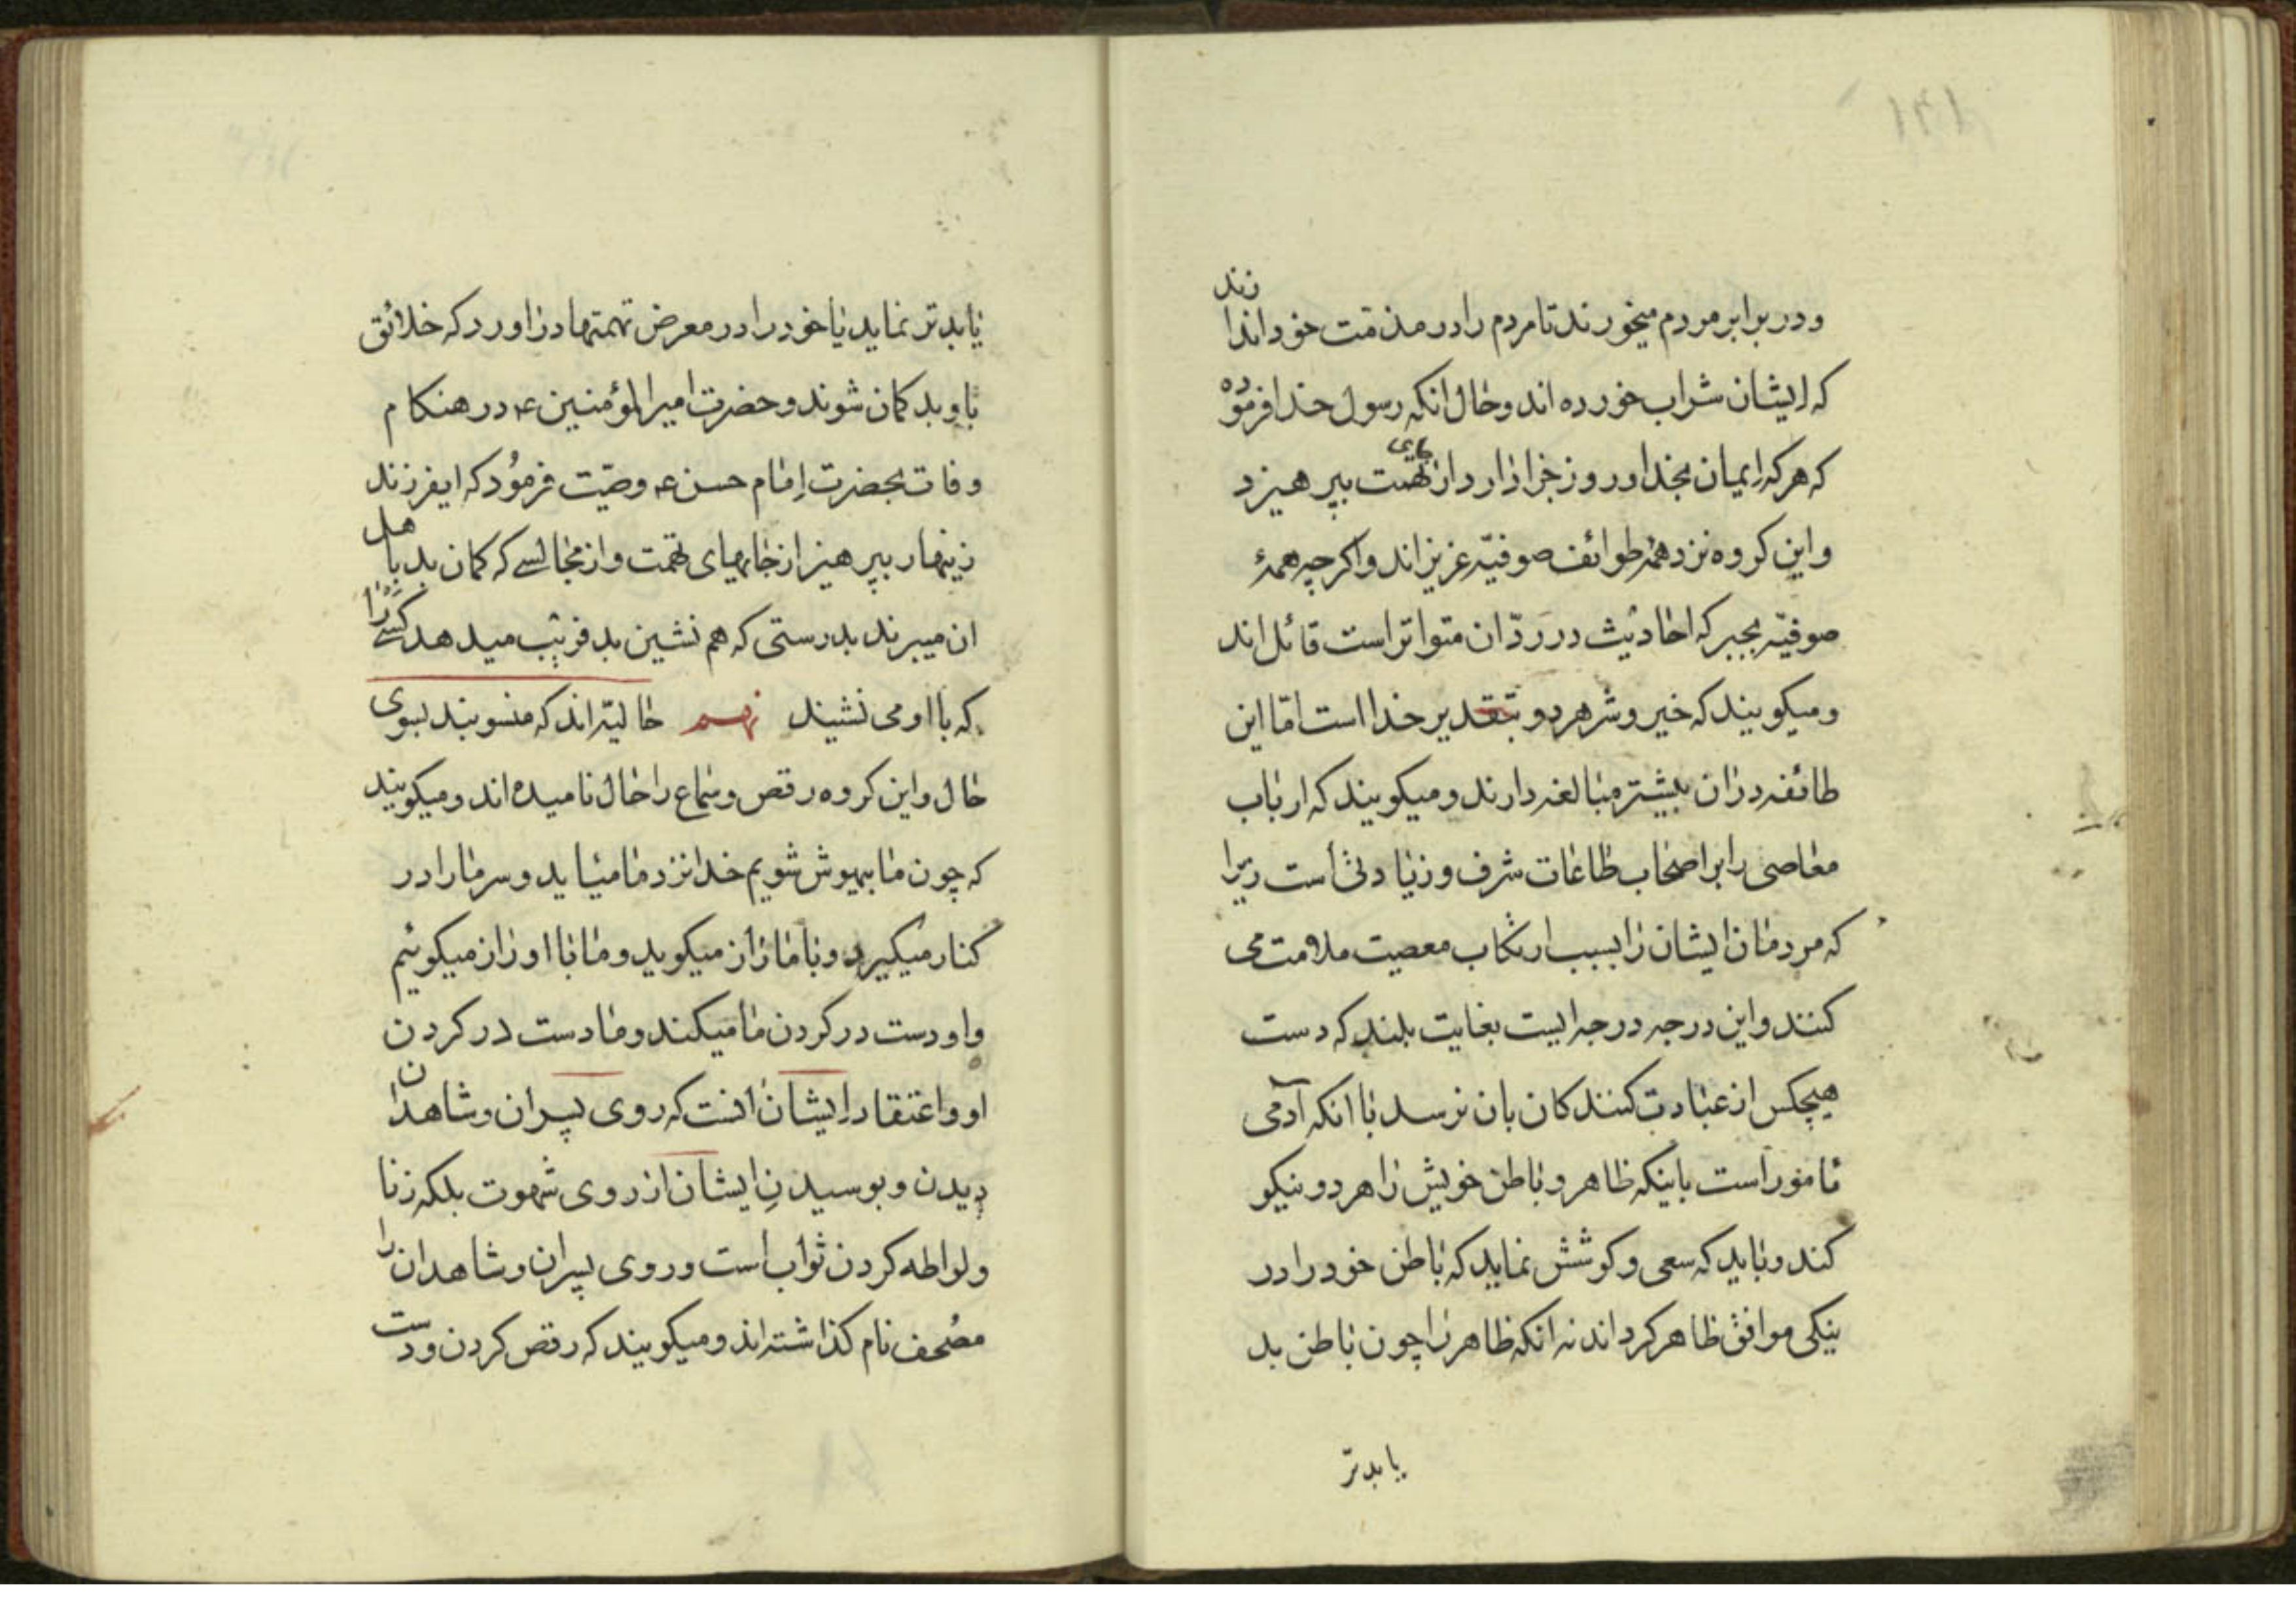 و در برابر مردم میخورند تا مردم را در مذمّت خود اندازند
که ایشان شراب خورده اند و حال انکه رسول خدا فرموده
که هر که ایمان بخدا و روز جزا دارد از جای تهمت بپرهیزد
و این کروه نزد همۀ طوائف صوفیّه عزیزاند و اکرچه همۀ
صوفیّه بجبر که احادیث در ردّ ان متواتر است قائل اند
و میکویند که خیر و شر هر دو بتقدیر خدا است امّا این
طائفه در ان بیشتر مبالغه دارند و میکویند که ارباب
معاصی را بر اصحاب طاعات شرف و زیادتی است زیرا
که مردمان ایشان را بسبب ارتکاب معصیت ملامت می
کنند و این درجه درجه ایست بغایت بلند که دست
هیچکس از عبادت کنندکان بان نرسد با انکه آدمی
مامور است باینکه ظاهر و باطن خویش را هر دو نیکو
کند و باید که سعی و کوشش نماید که باطن خود را در
نیکی موافق ظاهر کرداند نه انکه ظاهر را چون باطن بد
یا بدتر
یا بدتر نماید یا خود را در معرض تهمتها در اورد که خلائق
باو بد کمان شوند و حضرت امیرالمؤمنین ع در هنکام
وفات بحضرت امام حسن ع وصیّت فرمود که ایفرزند
زینهار بپرهیز از جایهای تهمت و از مجالسی که کمان بد باهل
ان میبرند بدرستی که هم نشین بد فریب میدهد کسی را
که با او می نشیند نهم حالیّه اند که منسوبند بسوی
حال و این کروه رقص و سماع را حال نامیده اند و میکویند
که چون ما بیهوش شویم خدا نزد ما میاید و سر ما را در
کنار میکیرد و با ما راز میکوید و ما با او راز میکوئیم
و او دست در کردن ما میکند و ما دست در کردن
او و اعتقاد ایشان انست که روی پسران و شاهدان
دیدن و بوسیدن ایشان از روی شهوت بلکه زنا
و لواطه کردن ثواب است و روی پسران و شاهدان را
مصحف نام کذاشته اند و میکویند که رقص کردن و دست